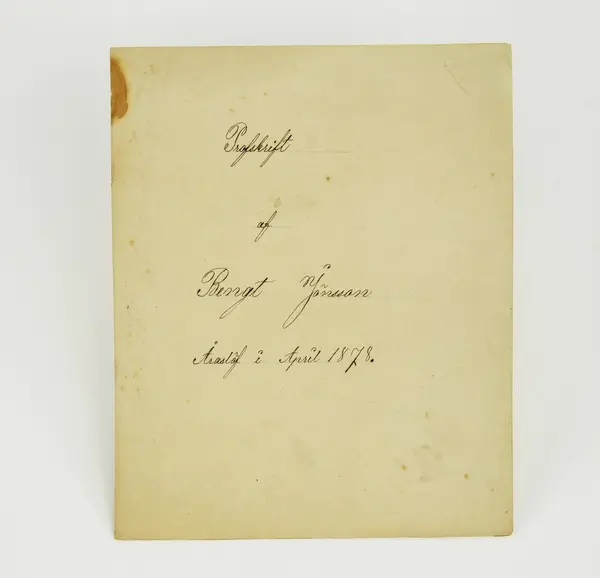 Profskrift
af
Bengt Jönsson
Araslöf i April 1878.